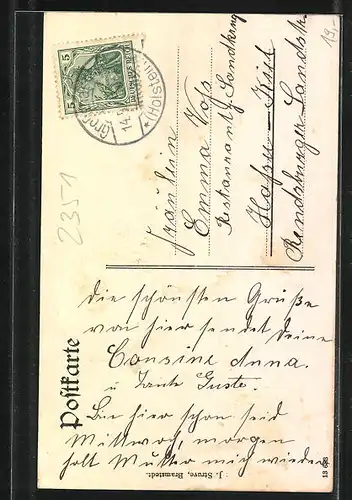 19,-
5
5
Gross
14.5
*(Holstein)
2351
Fräulein
Emma Voss
Restaurant z. Sandkrug
Hassee-Kiel
Rendsburger Landstr.
Postkarte
Die schönsten Grüße
von hier sendet Deine
Consine Anna.
u Tante Guste.
Bin hier schon seid
Mittwoch, morgen
holt Mutter mich wieder
: J. Struve, Bramstedt.